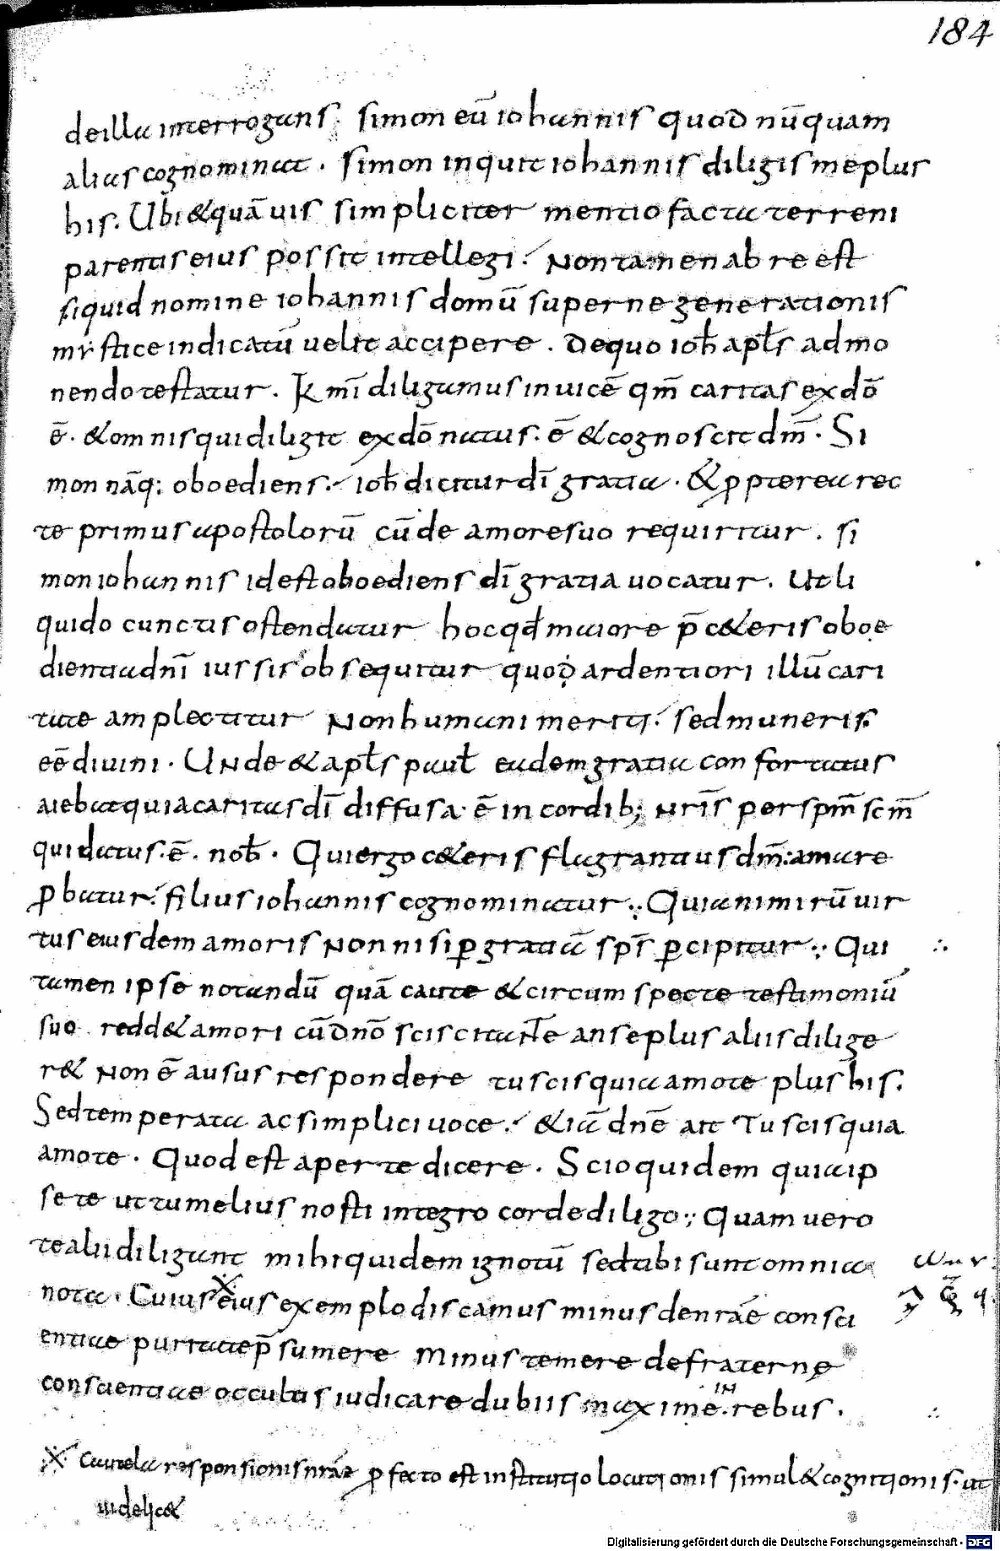 184
de illa interrogans; simon eū iohannis quod nūquam
alias cognominat. simon inquit iohannis diligis me plus
his. Ubi & quāuis simpliciter mentio facta terreni
parentis eius possit intellegi. Non tamen ab re est
siquid nomine iohannis domū supernę generationis
mystice indicatū uelit accipere. De quo ioh̄ apl̄s admo
nendo testatur. K̄mi diligamus inuicē qm̄ caritas ex dō
ē. & omnis qui diligit ex dō natus. ē & cognoscit dm̄. Si
mon nāq; oboediens. ioh̄ dicitur dī gratia. & ꝓpterea rec
te primus apostolorū cū de amore suo requiritur. si
mon iohannis id est oboediens dī gratia uocatur. Ut li
quido cunctis ostendatur hoc qd̄ maiore p̄ c&eris oboe
dientia dnī iussis obsequitur quod ardentiori illū cari
tate amplectitur Non humani meriti. sed muneris
eē diuini. Unde & apl̄s paul̄ eadem gratia confortatus
aiebat quia caritas dī diffusa. ē in cordib; nrīs per spm̄ scm̄
qui datus. ē. nob̄. Qui ergo c&eris flagrantius dm̄ amare
ꝓbatur. filius iohannis cognominatur. Quia nimirū uir
tus eiusdem amoris Non nisi ꝑ gratiā sps̄ ꝑcipitur. Qui
tamen ipse notandū quā caute & circumspecte testimoniū
suo redd& amori cū dnō sciscitante an se plus aliis dilige
r& Non ē ausus respondere tu scis quia amo te plus his.
Sed temperata ac simplici uoce. &iā dnē ait Tu scis quia
amo te. Quod est aperte dicere. Scio quidem quia ip
se te ut tu melius nosti integro corde diligo; Quam uero
te alii diligunt mihi quidem ignotū sed tibi sunt omnia
nota. Cuius eius exemplo discamus minus de nrāe consci
entiae puritate p̄sumere Minus temere de fraternę
conscientiae occultis iudicare dubiis maxime. in rebus.
Cautela responsionis nrāe ꝓfecto est institutio locutionis simul & cognitionis. ut
uidelic&
Digitalisierung gefördert durch die Deutsche Forschungsgemeinschaft - DFG